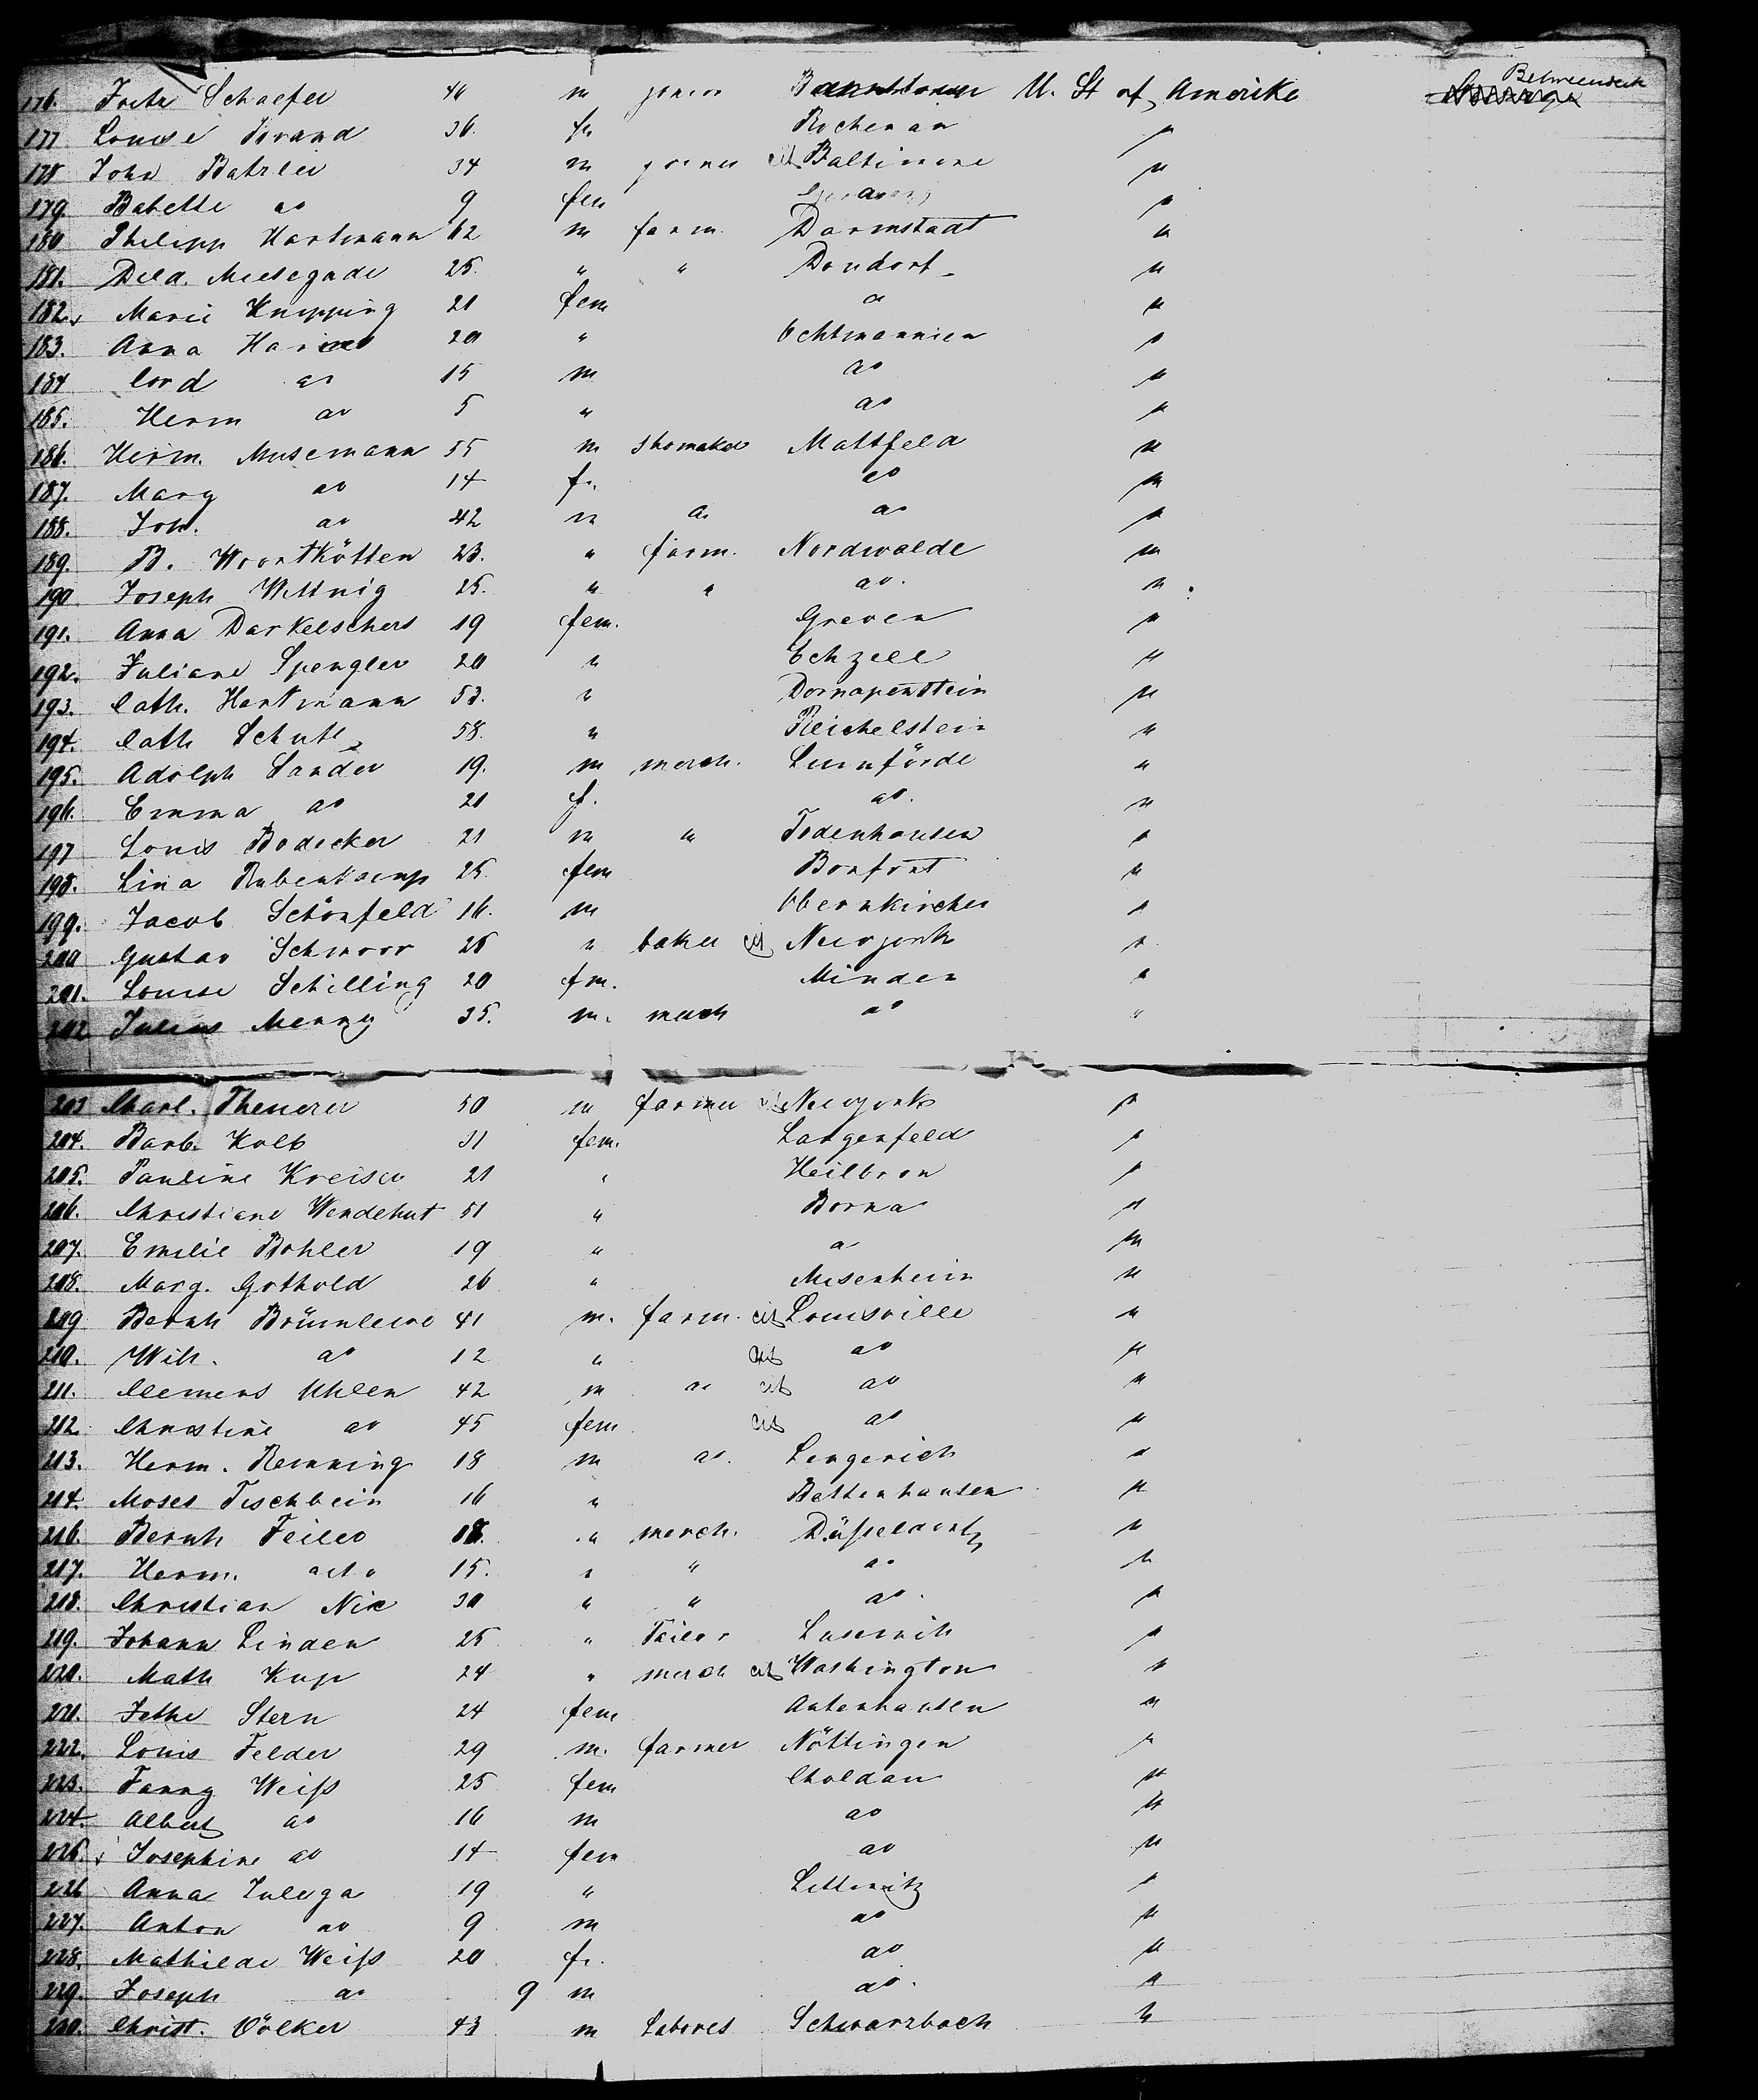 Betweendeck
176. Fritz Schaefer 40 m joiner U. St of Amerika
177 Louise Brand 36. fe "
178 John Batzler 34 m joiner cit Baltimore "
179. Babette do 9 fem "
180 Philipp Hartmann 62 m farm. Darmstadt "
181. Died. Miesegade 25. " " "
182. Marie Knipping 21 fem " "
183. Anna 20 " Ochtmannien "
184 Cord do 15 m do "
185. Herm do 5 " do "
186. Herm. Musemann 55 m Shomaker Mattfeld "
187. Marg do 14 fe. do "
188. Joh. do 42 m do do "
189. B. Woortkötten 23. " farm. Nordwalde "
190 Joseph Wettnig 25. " " do. "
191. Anna Darkelschers 19 fem. Greven "
192. Juliane Spengler 20 " Echzell "
193. Cath. Hartmann 53. " "
194. Cath Schutz 58. " Reichelstein "
195. Adolph Sander 19. m merch. Lemförde "
196. Emma do 21 f. do. "
197 Louis Bodecker 21 m " Todenhausen "
198. Lina Rubenkamp 25. fem "
199. Jacob Schönfeld 16. m Obernkirchen "
200 Gustav Schmorr 25 " baker cit Newyork "
201. Louise Schilling 20 fm. Minden "
202 Julius Menny 35. m. merch do "
203 Charl. Theurer 50 m farmer cit Newyork "
204. Barb. Kolb 31 fem. Langenfeld "
205. Pauline Kreiser 21 " Heilbron "
206. Christiane Wendehut 51 " Borna "
207. Emilie Bohler 19 " do "
208. Marg. Gothold 26 " Meisenheim "
209 Bernh 41 m. farm. cit Louisville "
210. Wilh. do 12 " cit do "
211. Clemens Uhlen 42 m do cit do "
212. Christine do 45 fem. cit do "
213. Herm. Remning 18 m do. Lengerich "
214. Moses Tischbein 16 " Bettenhausen "
216. Bernh Feiler 18. " merch. Düsseldorf "
217. Herm. dito 15. " " do "
218. Christian Nix 30 " " do. "
219. Johann Linden 25 " Tailor "
220. Math Kup 24 " merch cit Washington "
221. Jethe Stern 24 fem "
222. Louis Felder 29 m. farmer Nöttingen "
223. Fanny Weiss 25 fem Choldau "
224. Albert do 16 m do "
225. Josephine do 14 fem do "
226 Anna Zulega 19 " Lettowitz "
227. Anton do 9 m do "
228. Mathilde Weiss 20 fe. do "
229. Joseph do 9 m do. "
230. Christ. Völker 43 m Laborer Schwarzbach "